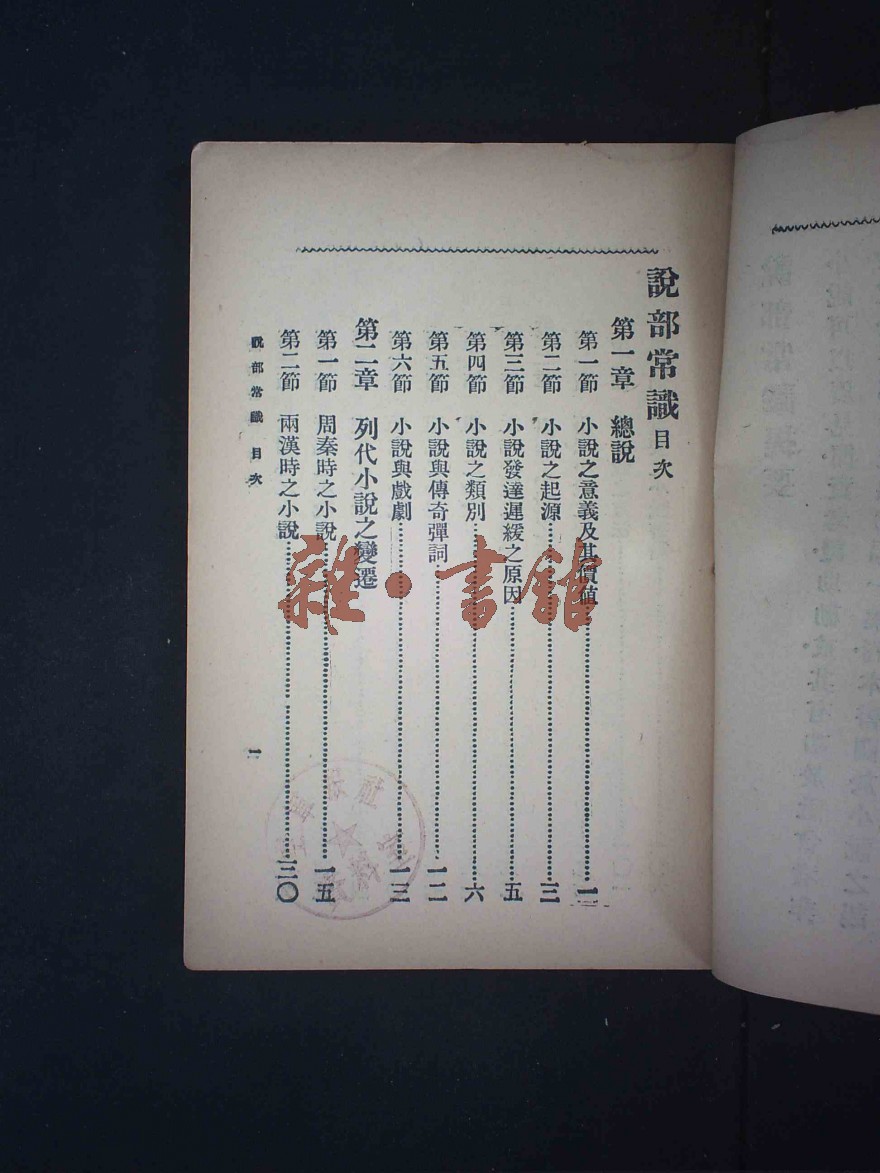 說部常識目次
第一章 總說
第一節 小說之意義及其價值……一
第二節 小說之起源……三
第三節 小說發達遲緩之原因……五
第四節 小說之類別……六
第五節 小說與傳奇彈詞……一二
第六節 小說與戲劇……一三
第二章 列代小說之變遷
第一節 周秦時之小說……一五
第二節 兩漢時之小說……三〇
說部常識 目次
一
雜·書館